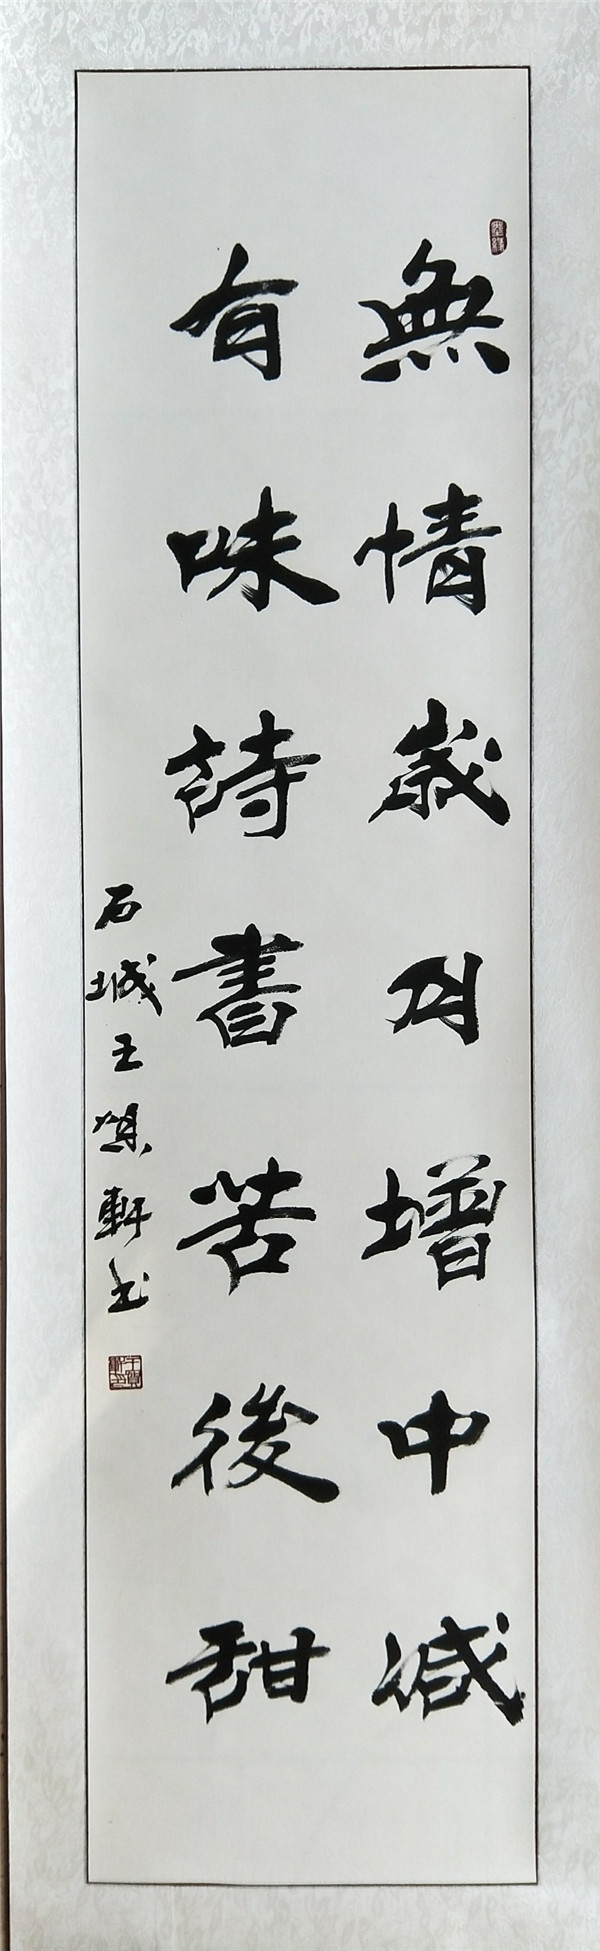 無情歲月增中減
有味詩書苦後甜
石城王積軒书